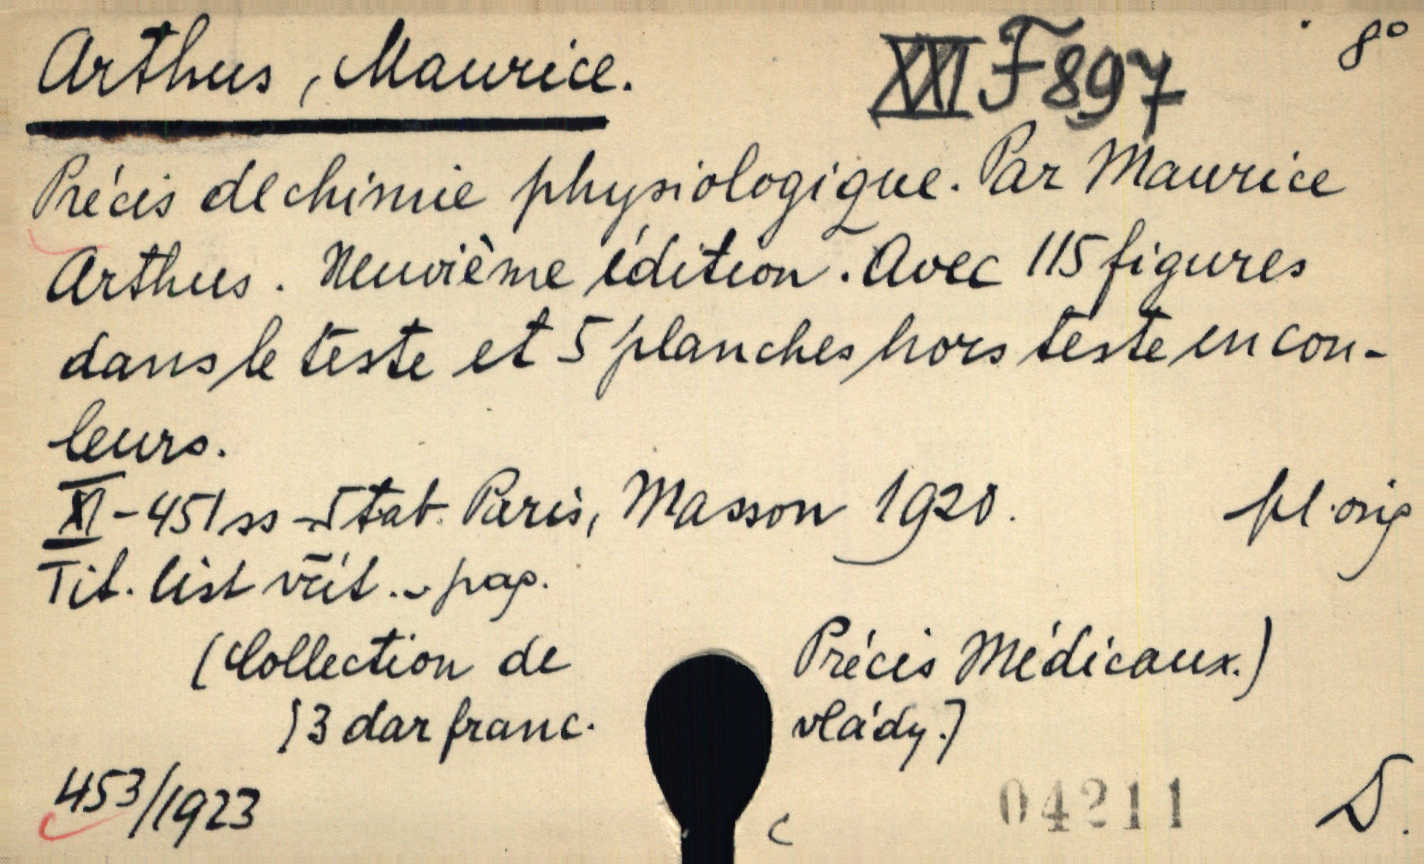 Arthus, Maurice.
XXI F 897
8°
Précis de chimie physiologique. Par Maurice
Arthus. Neuvième édition. Avec 115 figures
dans le teste et 5 planches hors teste en cou-
leurs.
XI-451 ss -5 tab. Paris, Masson 1920.
pl. orig
Tit. list včít. pag.
(Collection de Précis Médicaux.)
)3 dar franc. vlády.)
453/1923
c
04211
D.